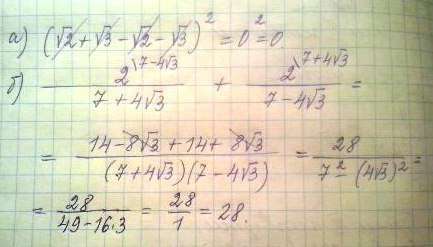 а) (√2 + √3 − √2 − √3)² = 0² = 0.
б) 2\7−4√3 / 7 + 4√3 + 2\7+4√3 / 7 − 4√3 =
= 14 − 8√3 + 14 + 8√3 / (7 + 4√3)(7 − 4√3) = 28 / 7² − (4√3)² =
= 28 / 49 − 16·3 = 28 / 1 = 28.